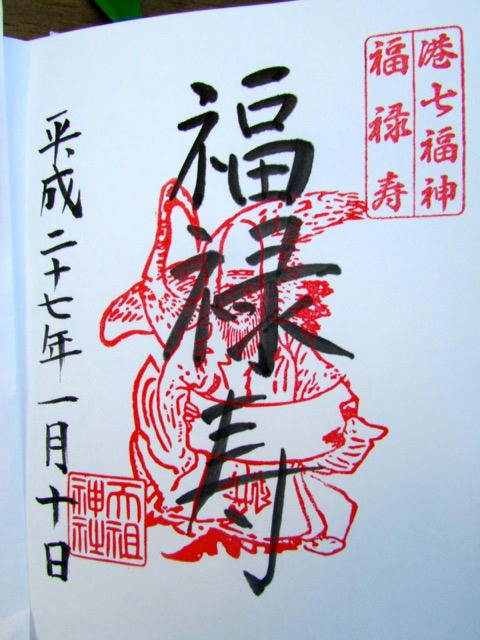 港七福神
福禄寿
福禄寿
平成二十七年一月十日
天祖
神社